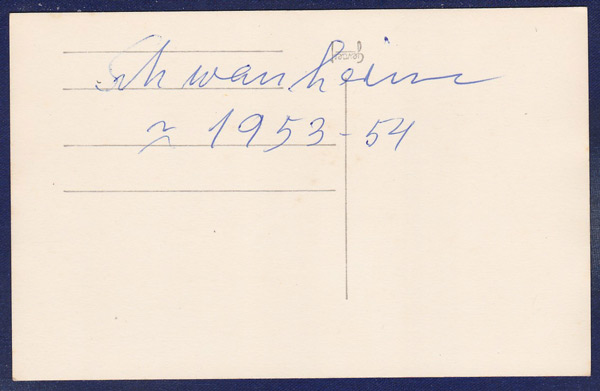 Schwanheim
≈ 1953-54